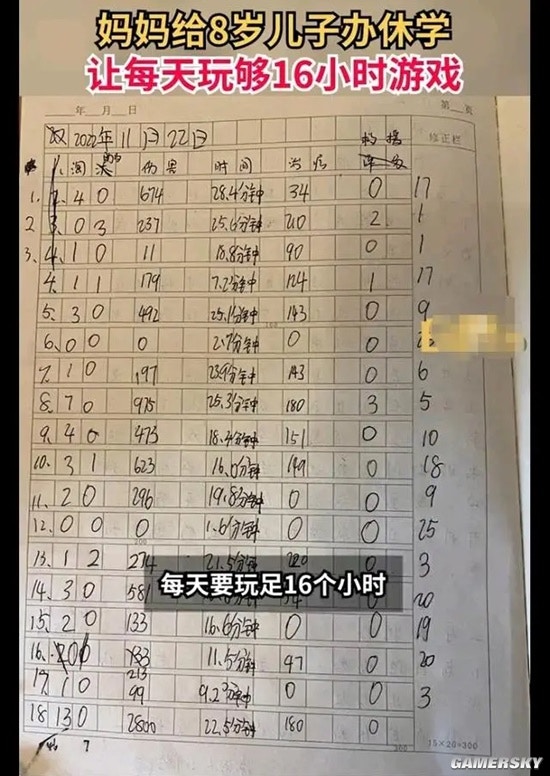 妈妈给8岁儿子办休学
让每天玩够16小时游戏
年 月 日 第 页
2022年11月22日 修正栏
伤害 时间 治疗
1. 4 0 674 28.4分钟 34 0 17
2 0 3 237 25.6分钟 210 2 1
3. 1 0 11 18.8分钟 90 0 1
4. 1 1 179 7.2分钟 124 1 17
5. 3 0 492 25.1分钟 143 0 9
6. 0 0 0 2.7分钟 0 0
7. 1 0 197 23.9分钟 143 0 6
8. 7 0 975 25.3分钟 180 3 5
9. 4 0 473 18.4分钟 151 0 10
10. 3 1 623 16.0分钟 149 0 18
11. 2 0 296 19.8分钟 0 0 9
12. 0 0 0 1.6分钟 0 0 25
13. 1 2 274 21.5分钟 0 3
每天要玩足16个小时
14. 3 0 581 0 20
15. 2 0 133 16.6分钟 0 0 19
16. 11.5分钟 47 0 20
213
17. 1 0 99 9.2分钟 0 0 3
18 13 0 2800 22.5分钟 180 0
15×20=300
GAMERSKY